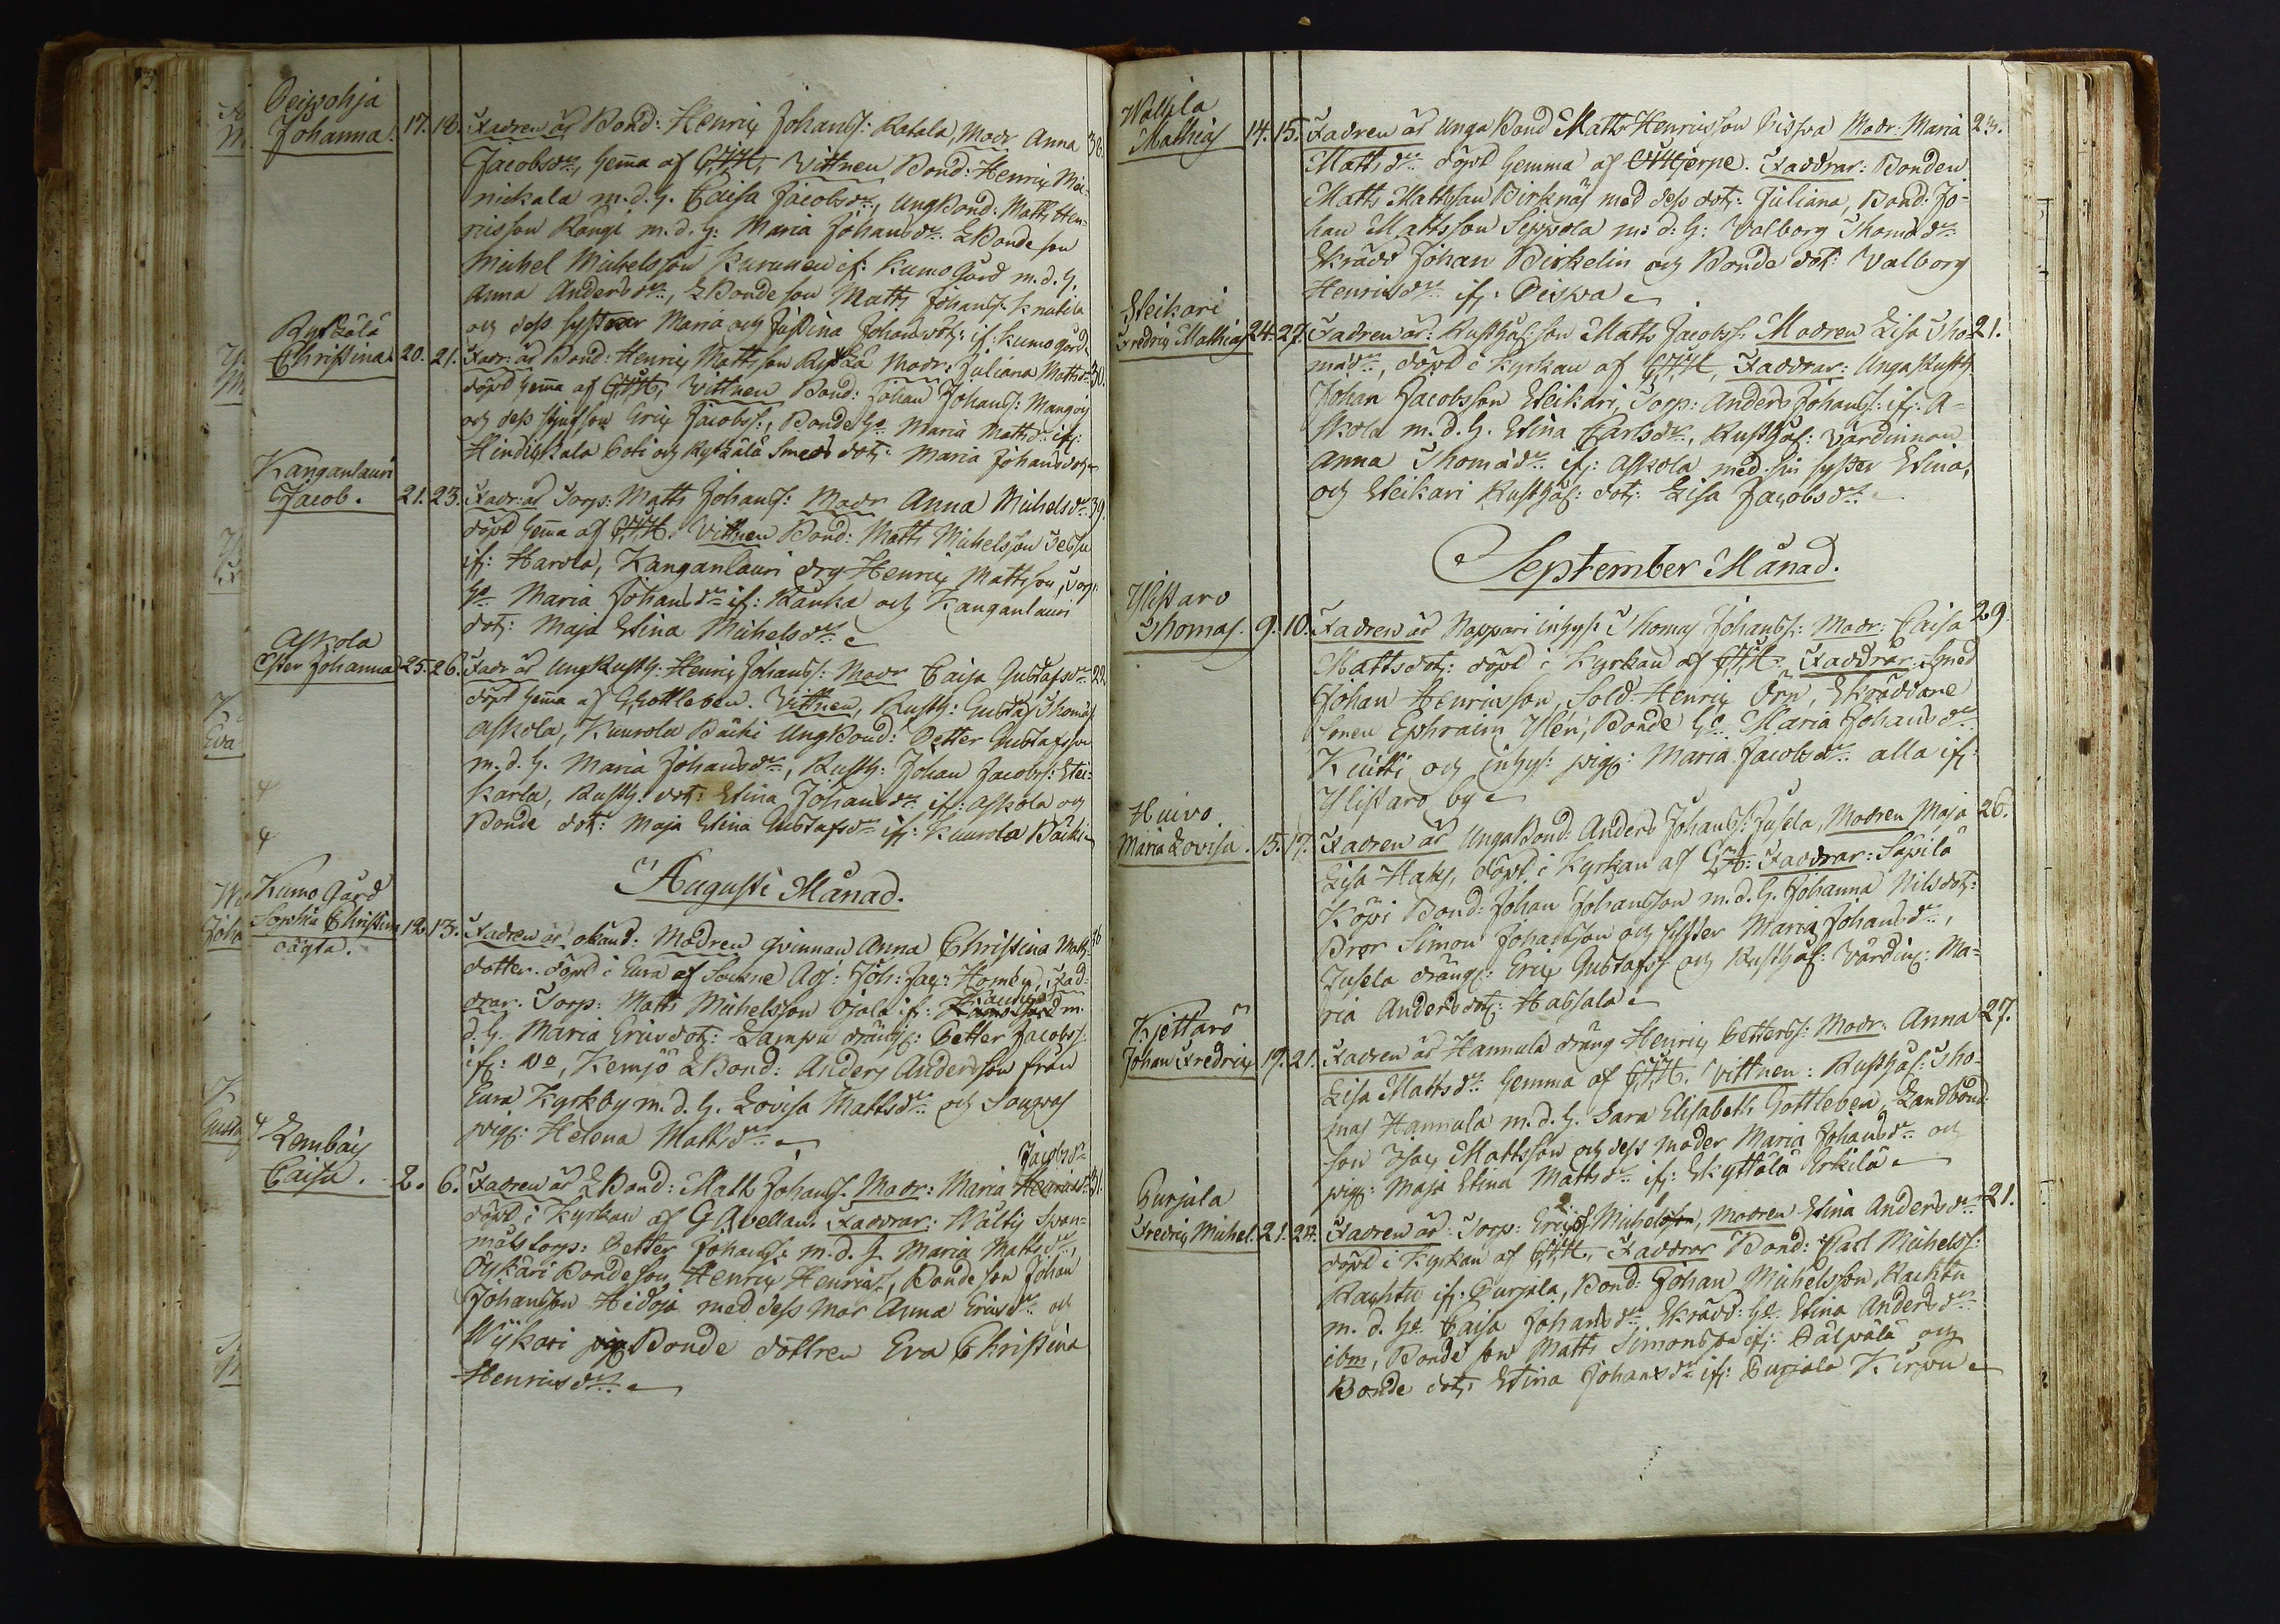 Peipohja
Johanna. 17. 18. Fadren är Bond: Henric Johanss: Ratala, Modr Anna 38.
Jacobsdr, hemma af GHH, Vittnen Bond: Henric Mei-
nickala m. d. h. Caisa Jacobsdr, Ung Bond: Matts Hen-
ricsson Rangi m. d. h: Maria Johansdr. LBonde son
Michel Michelsson Kurunen if: Kumo Gård m. d. h.
Anna Andersdr, LBonde son Matts Johanss: Knutila
och dess syster Maria och Justina Johansdot: if: Kumo gård
Ryssälä
Christina. 20. 21. Fadr: är Bond: Henric Mattsson Modr: Juliana Mattsdr 30.
döpt hemma af GHH, Vittnen Bond: Johan Johanss: Mangoi
och dess Eric Jacobss:, Bonde ho Maria Mattsdr if:
och Smeds dot: Maria Johansdotr
Kanganlauri
Jacob. 21. 23. Fadr: är Torp: Matts Johanss: Modr Anna Michelsdr 39.
döpt hemma af GHH. Vittnen Bond: Matts Michelsson
if: Harola, Kanganlauri drg Henric Mattsson, Torp.
ho Maria Johansdr if: Kauka och Kanganlauri
dot: Maja Stina Michelsdr
Askola
Ester Johanna 25. 26. Fadr är Ung Rusth: Henric Johanss: Modr Caisa Gustafsdr 22
döpt hemma af GGottleben. Vittnen, Rusth: Gustaf Thomass
Askola, Kuurola Bäcki Ung Bond: Petter Gustafsson
m. d. h. Maria Johansdr, Rusth: Johan Jacobss: Stei-
karla, Rusth: dot: Stina Johansdr if: Askola och
Bonde dot: Maja Stina Gustafsdr if: Kuurola Bäcki
Augusti Månad.
Kumo Gård
Sophia Christina 12. 13. Fadren är okänd: Modren qvinnan Anna Christina Matts 36
oägta. dotter. döpt i Eura af Sockne Adj: Joh: Jac: Homén, Fad-
drar. Torp: Matts Michelsson Ojala if: m.
d. h. Maria Ericsdot: Lampu dräng: Petter Jacobss.
if: do, Kemjö LBond: Anders Andersson från
Eura Kyrkby m. d. h. Lovisa Mattsdr och
pig: Helena Mattsdr
Lembäis Jacobsdr
Caisa. 2. 6. Fadren är LBond: Matts Johanss. Modr: Maria Henricsd 31.
döpt i Kyrkan af GAvellan. Faddrar: Span-
måls torp: Petter Johanss: m. d. h. Maria Mattsdr,
Bonde son Henric Henricss, Bonde son Johan
Johansson Hidoja med dess mor Anna Ericsdr och
Wijkari pig Bonde dottren Eva Christina
Henricsdr
Wallila
Mathias 14. 15. Fadren är Unga Bond Matts Henricsson Modr: Maria 23.
Mattsdr döpt hemma af GHHjerpe. Faddrar: Bonden
Matts Mattsson Birknäs med dess dot: Juliana, Bond: Jo-
han Mattsson Seppola m: d: h: Valborg Thomædr
Skrädd Johan Birkelin och Bonde dot: Valborg
Henricsdr if: Peippa
Steikari
Fredric Mathias 24. 27. Fadren är: Rusthål: son Matts Jacobss: Modren Lisa Tho- 21.
mædr, döpt i Kyrkan af GHH, Faddrar: Unga Rusth
Johan Jacobsson Steikari, Torp: Anders Johanss: if: A-
skola m. d. h. Stina Carlsdr, Rusthål: värdinnan
Anna Thomædr if: Askola med sin syster Stina,
och Steikari Rusthål: dot: Lisa Jacobsdr.
September Månad.
Ylistaro
Thomas. 9. 10. Fadren är Nappari inhys: Thomas Johanss: Modr: Caisa 29
Mattsdot: döpt i Kyrkan af GHH. Faddrar: Smed
Johan Henricsson, Sold: Henric Örn, Skräddare
sonen Ephraim Ylén, Bonde ho Maria Johansdr
Knitti och inhys: pig: Maria Jacobsdr alla if:
Ylistaro by
Huivo
Maria Lovisa. 15. 17. Fadren är Unga Bond: Anders Johanss: Jusela, Modren Maja 26.
Lisa Haks, döpt i Kyrkan af GHH: Faddrar: Säpilä
Köpi Bond: Johan Johansson m. d. h. Johanna Nilsdot:
Bror Simon Johansson och Syster Maria Johansdr,
Jusela dräng: Eric Gustafss och Rusthål: Värdin: Ma-
ria Andersdot: Hassala
Kjettarö
Johan Fredric 19. 21. Fadren är Hannula dräng Henric Petterss: Modr: Anna 27.
Lisa Mattsdr hemma af GHH. Vittnen: Rusthål: Tho-
mas Hannula m. d. h. Sara Elisabeth Gottleben, Landbond:
son Isac Mattsson och dess Moder Maria Johansdr och
pig: Maja Stina Mattsdr if: Skyttälä Erkilä
Purjala
Fredric Michel. 21. 24. Fadren är: Torp: Eric Michelsson, Modren Stina Andersdr 21.
döpt i Kyrkan af GHH, Faddrar Bond: Carl Michelss:
Rachtu if: Purjala, Bond: Johan Michelsson Rachtu
m. d. ho Caisa Johansdr Skrädd: ho Stina Andersdr
ibm, Bonde son Matts Simonsson if: och
Bonde dot: Stina Johansdr if: Purjala Kirpu